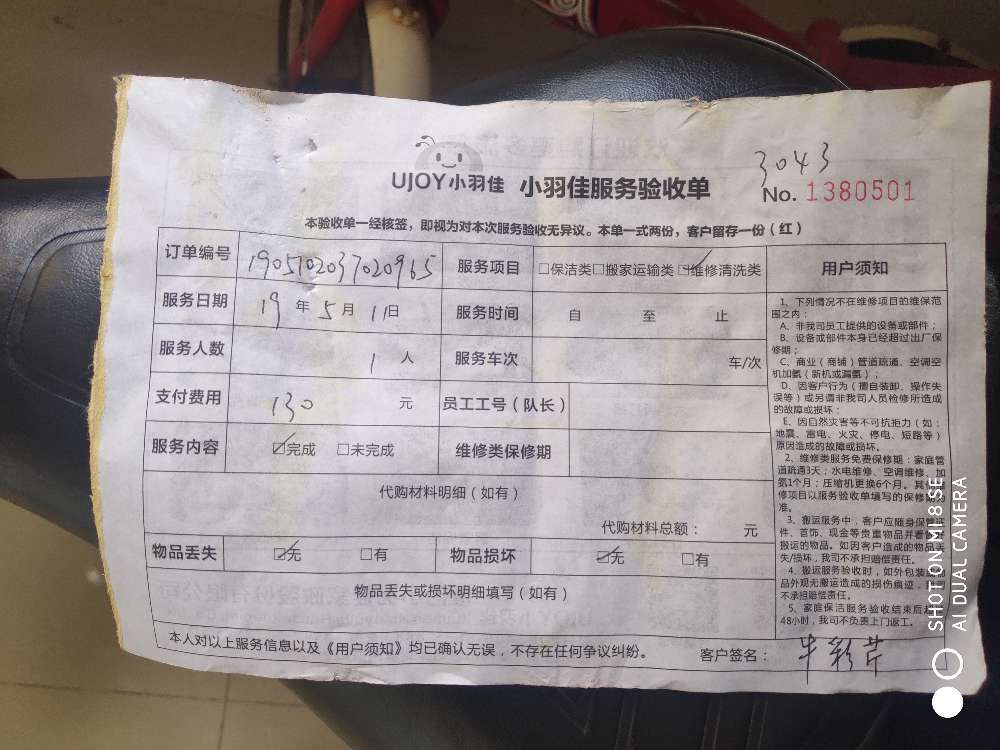 3043
UJOY小羽佳 小羽佳服务验收单 No. 1380501
本验收单一经核签，即视为对本次服务验收无异议。本单一式两份，客户留存一份（红）
订单编号 1905102037020965 服务项目 □保洁类□搬家运输类☑维修清洗类
服务日期 19年5月11日 服务时间 自 至 止
服务人数 1人 服务车次 车/次
支付费用 130 元 员工工号（队长）
服务内容 ☑完成 □未完成 维修类保修期
代购材料明细（如有）
代购材料总额： 元
物品丢失 ☑无 □有 物品损坏 ☑无 □有
物品丢失或损坏明细填写（如有）
本人对以上服务信息以及《用户须知》均已确认无误，不存在任何争议纠纷。 客户签名：牛彩芹
用户须知
1、下列情况不在维修项目的维保范
围之内：
A、非我司员工提供的设备或部件；
B、设备或部件本身已经超过出厂保
修期；
C、商业（商铺）管道疏通、空调空
机加氨（新机或漏氨）；
D、因客户行为（擅自装卸、操作失
误等）或另请非我司人员检修所造成
的故障或损坏；
E、因自然灾害等不可抗拒力（如：
地震、雷电、火灾、停电、短路等）
原因造成的故障或损坏。
2、维修类服务免费保修期：家庭管
道疏通3天；水电维修、空调维修、加
氨1个月；压缩机更换6个月。其
修项目以服务验收单填写的保修期
准。
3、搬运服务中，客户应随身保管
件、首饰、现金等贵重物品并看
搬运的物品。如因客户造成的物品丢
失/损坏，我司不承担赔偿责任。
4、搬运服务验收时，如外包装
品外观无搬运造成的损伤痕迹，
不承担赔偿责任。
5、家庭保洁服务验收结束后
48小时，我司不负责上门返工。
SHOT ON MI 8SE
AI DUAL CAMERA